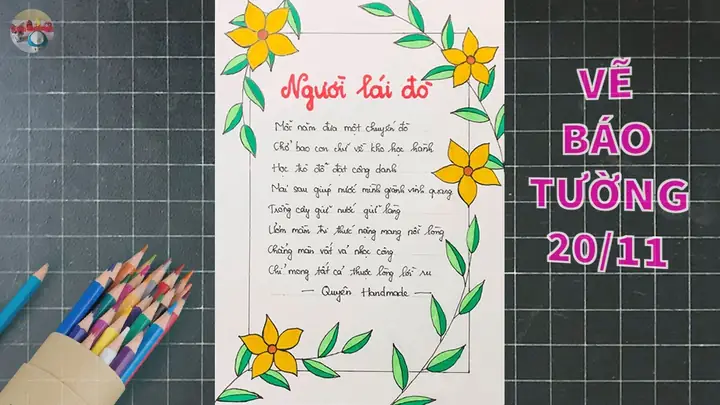 Người lái đò
Mỗi năm đưa một chuyến đò
Chở bao con chữ về kho học hành
Học trò đỗ đạt công danh
Mai sau giúp nước mình giành vinh quang
Trồng cây giữ nước giữ làng
Ươm mầm tri thức nặng mang nỗi lòng
Chẳng màn vất vả nhọc công
Chỉ mong tất cả thuộc lòng lời ru
Quyên Handmade
VẼ
BÁO
TƯỜNG
20/11